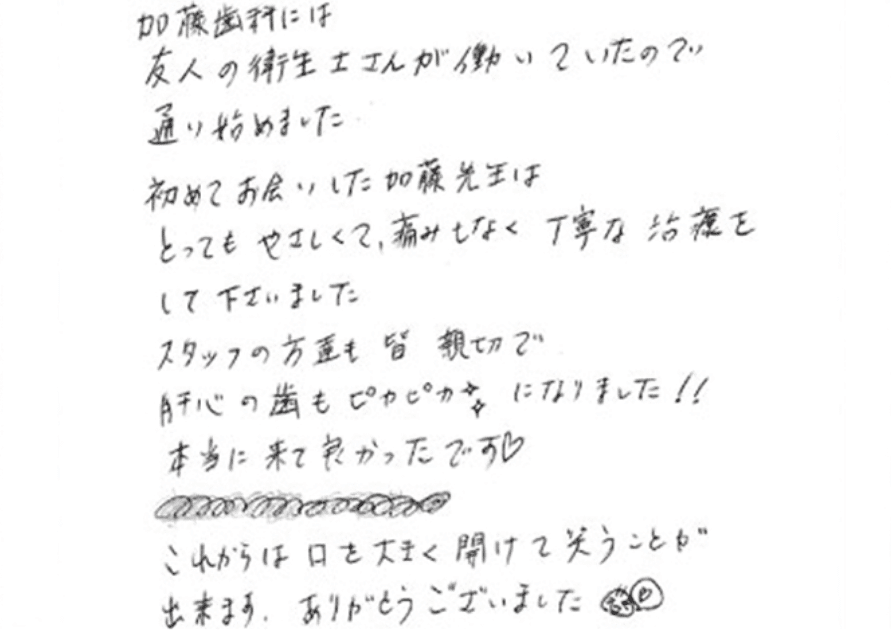 加藤歯科には
友人の衛生士さんが働いていたので
通り始めました.
初めてお会いした加藤先生は
とってもやさしくて,痛みもなく 丁寧な 治療を
して下さいました
スタッフの方達も 皆 親切で
肝心の歯もピカピカ✨になりました!!
本当に来て良かったです♡
これからは口を大きく開けて笑うことが
出来ます. ありがとうございました